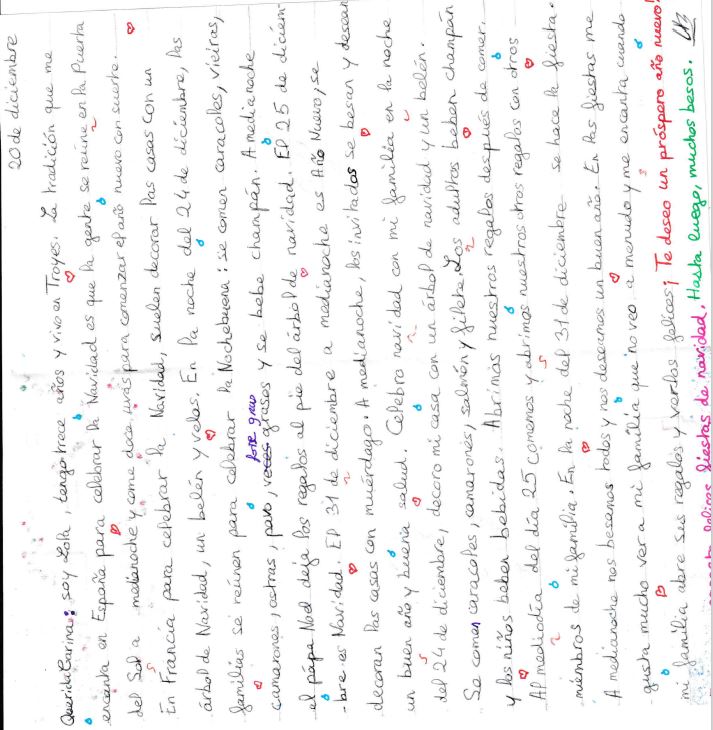 20 de diciembre
Querida Carina: soy Lola, tengo trece años y vivo en Troyes. La tradición que me
encanta en España para celebrar la Navidad es que la gente se reúne en la Puerta
del Sol a medianoche y come doce uvas para comenzar el año nuevo con suerte.
En Francia para celebrar la Navidad, suelen decorar las casas con un
árbol de Navidad, un belén y velas. En la noche del 24 de diciembre, las
familias se reúnen para celebrar la Nochebuena: se comen caracoles, vieiras,
camarones, ostras, pavo, foie gras y se bebe champán. A medianoche
el pápa Noel deja los regalos al pie del árbol de navidad. El 25 de diciem-
-bre es Navidad. El 31 de diciembre a medianoche es Año Nuevo, se
decoran las casas con muérdago. A medianoche, los invitados se besan y desean
un buen año y buena salud. Celebro navidad con mi familia en la noche
del 24 de diciembre, decoro mi casa con un árbol de navidad y un belén.
Se comen caracoles, camarones, salmón y filete. Los adultos beben champán
y los niños beben bebidas. Abrimos nuestros regalos después de comer.
Al mediodía del día 25 comemos y abrimos nuestros otros regalos con otros
miembros de mi familia. En la noche del 31 de diciembre se hace la fiesta.
A medianoche nos besamos todos y nos deseamos un buen año. En las fiestas me
gusta mucho ver a mi familia que no veo a menudo y me encanta cuando
mi familia abre sus regalos y verlos felices¡ Te deseo un próspero año nuevo!
felices fiestas de navidad. Hasta luego, muchos besos.